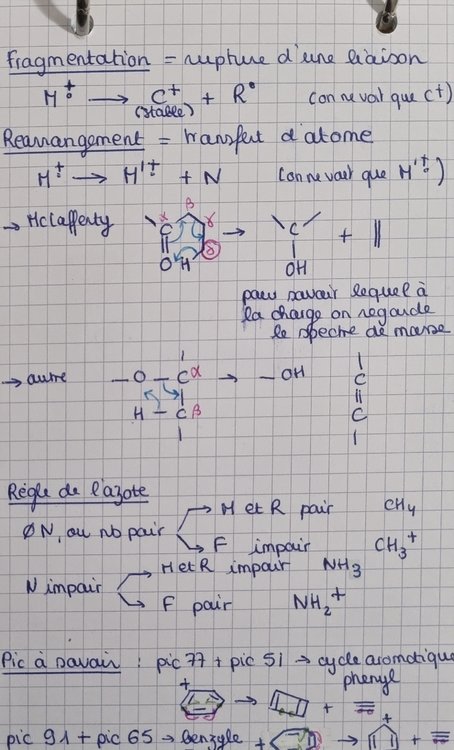 Fragmentation = rupture d'une liaison
M⁺• → C⁺ + R• (on ne voit que C⁺)
(stable)
Rearrangement = transfert d'atome
M⁺• → M'⁺• + N (on ne voit que M'⁺•)
→ McLafferty α β γ δ C O H → C OH + ||
pour savoir lequel à
la charge on regarde
le spectre de masse
→ autre – O – Cα → – OH C
H – Cβ C
Règle de l'azote
∅N, ou nb pair → M et R pair CH₄
→ F impair CH₃⁺
N impair → M et R impair NH₃
→ F pair NH₂⁺
Pic à savoir : pic 77 + pic 51 → cycle aromatique
phenyl
+ → +
pic 91 + pic 65 → benzyle + → + +